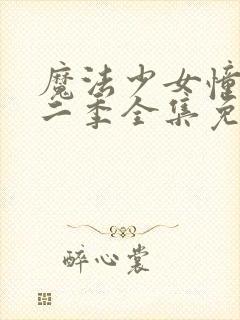 魔法少女憧
二季全集免
醉心裳